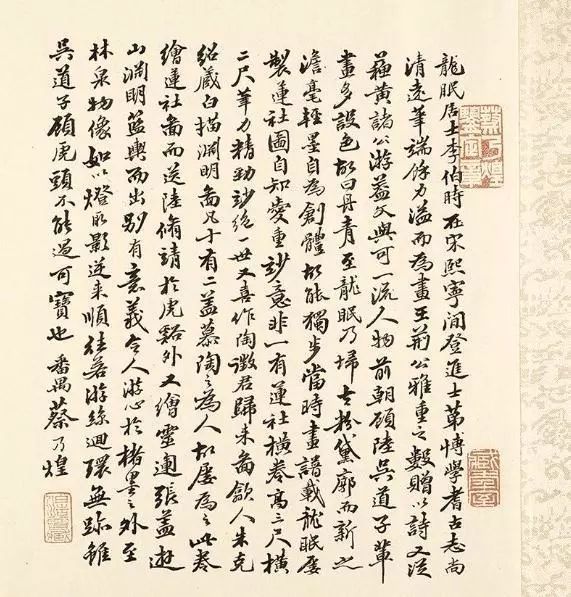 龍眠居士李伯時在宋熙寧間登進士第博學耆古志尚
清遠筆端餘力溢而為畫王荊公雅重之數贈以詩又從
蘇黃諸公游蓋文與可一流人物前朝顧陸吳道子輩
畫多設色故曰丹青至龍眠乃埽去粉黛廓而新之
澹毫輕墨自為創體故能獨步當時畫譜載龍眠屢
製蓮社圖自知愛重妙意非一有蓮社橫卷高三尺橫
二尺筆力精勁妙絕一世又喜作陶徵君歸來圖歙人朱克
紹藏白描淵明圖凡十有二蓋慕陶之為人故屢為之此卷
繪蓮社圖而送陸脩靖於虎谿外又繪靈運張蓋遊
山淵明籃輿而出別有意義令人游心於楮墨之外至
林泉物像如以燈取影逆來順往若游絲迴環無跡雖
吳道子顧虎頭不能過可寶也 番禺蔡乃煌
蔡乃煌